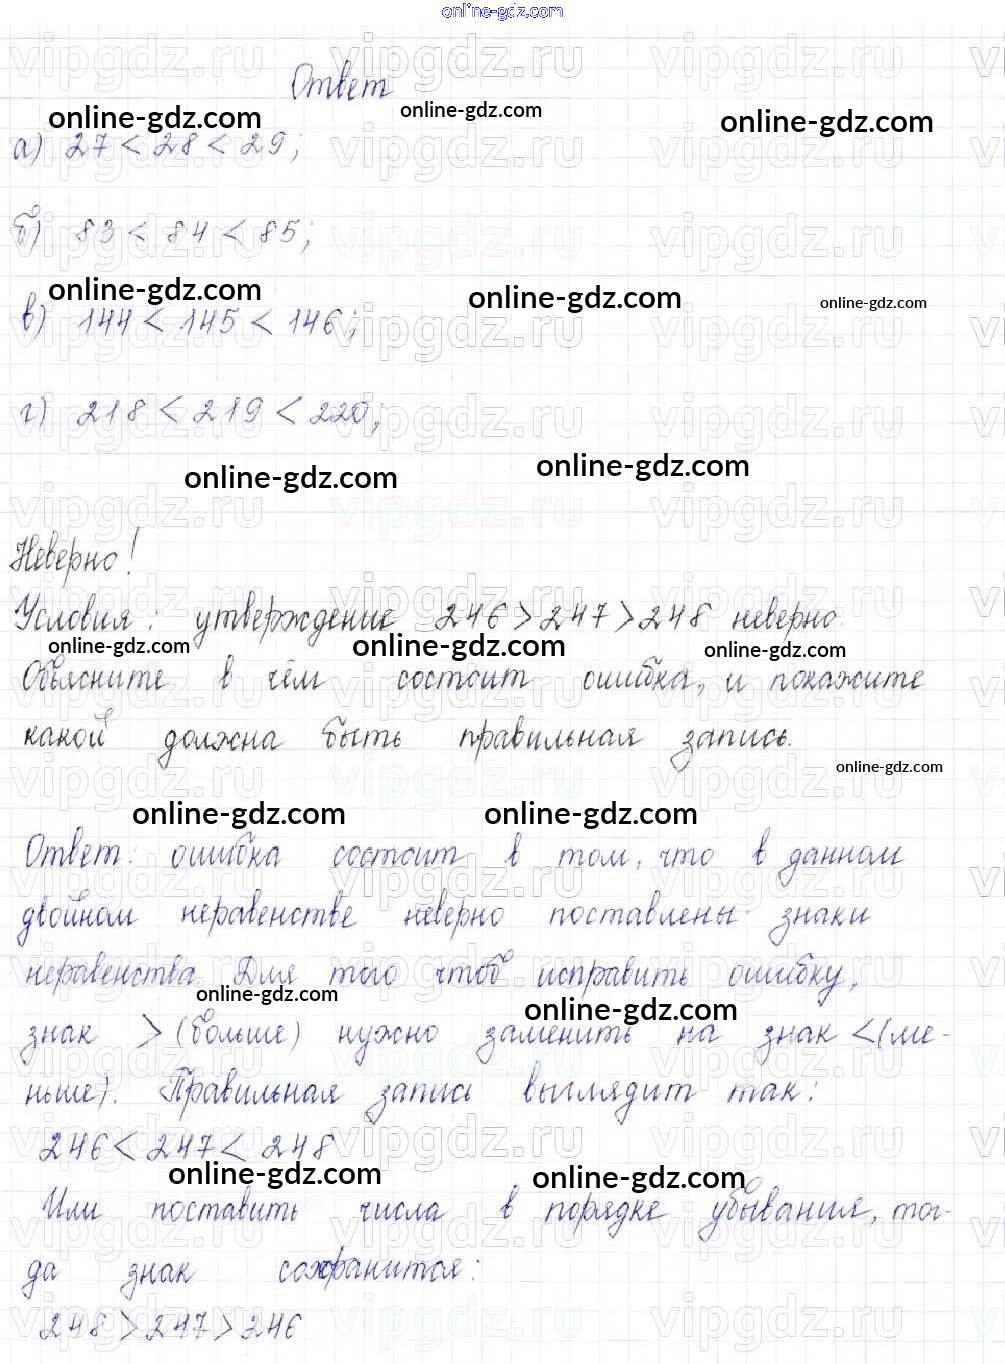 online-gdz.com
Ответ
online-gdz.com online-gdz.com online-gdz.com
а) 27 < 28 < 29;
б) 83 < 84 < 85;
online-gdz.com online-gdz.com online-gdz.com
в) 144 < 145 < 146;
г) 218 < 219 < 220;
online-gdz.com online-gdz.com
Неверно!
Условия: утверждение 246 > 247 > 248 неверно.
online-gdz.com online-gdz.com online-gdz.com
Объясните в чём состоит ошибка, и покажите
какой должна быть правильная запись.
online-gdz.com
online-gdz.com online-gdz.com
Ответ: ошибка состоит в том, что в данном
двойном неравенстве неверно поставлены знаки
неравенства. Для того чтоб исправить ошибку,
online-gdz.com online-gdz.com
знак > (больше) нужно заменить на знак < (ме-
ньше). Правильная запись выглядит так:
246 < 247 < 248
online-gdz.com online-gdz.com
Или поставить числа в порядке убывания, тог-
да знак сохранится:
248 > 247 > 246